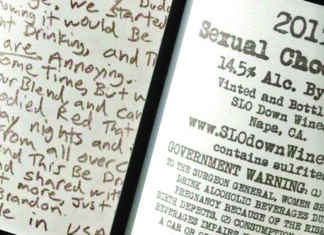 ge. we started
nowing it would Be
t Drinking, and Th
are Annoying.
ome Time, But w
our Blend and can
odied Red That
ay nights and
from all over C
nd This Be Dr
nd shared wit
more, Just
Brandon.
de in USA
201
Sexual Choc
14.5% Alc. By
Vinted and Bottl
SLO Down Wine
Napa, CA.
www.SLOdownWine
contains sulfite
GOVERNMENT WARNING: (1)
TO THE SURGEON GENERAL, WOMEN SH
DRINK ALCOHOLIC BEVERAGES DU
PREGNANCY BECAUSE OF THE RIS
BIRTH DEFECTS. (2) CONSUMPTION
BEVERAGES IMPAIRS
A CAR OR